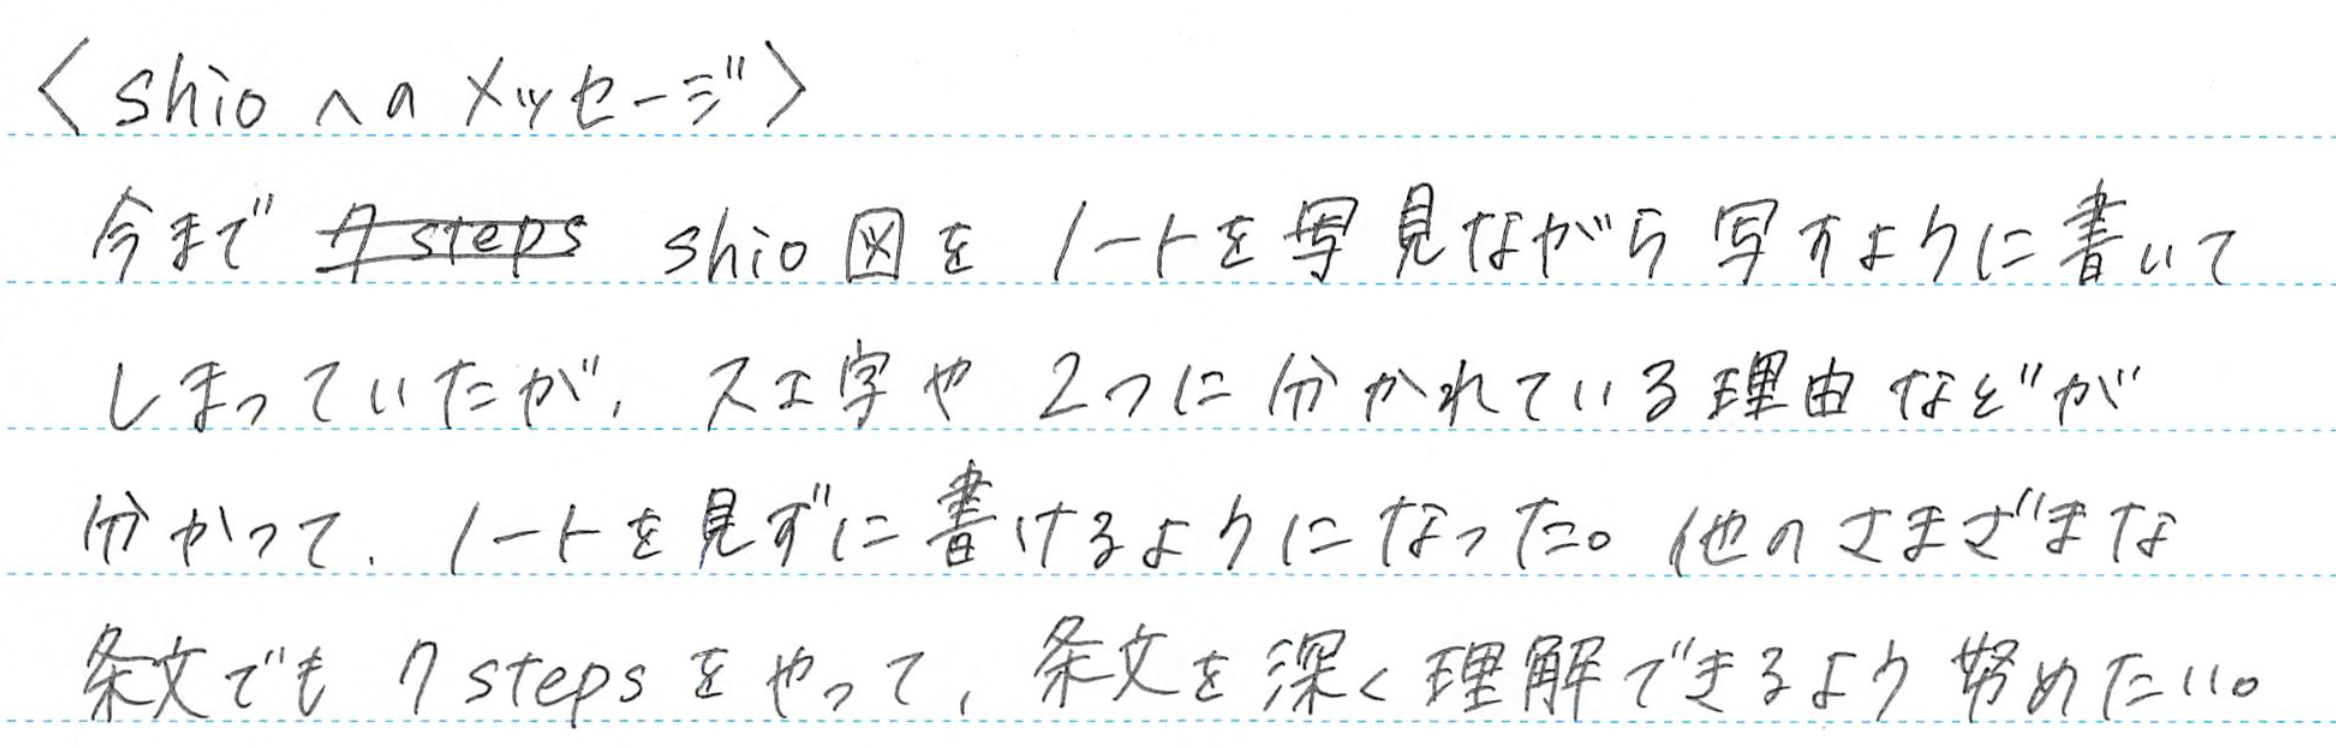 〈shioへのメッセージ〉
今まで 7 steps shio図をノートを写見ながら写すように書いて
しまっていたが、スエ字や2つに分かれている理由などが
分かって、ノートを見ずに書けるようになった。他のさまざまな
条文でも7 stepsをやって、条文を深く理解できるよう努めたい。